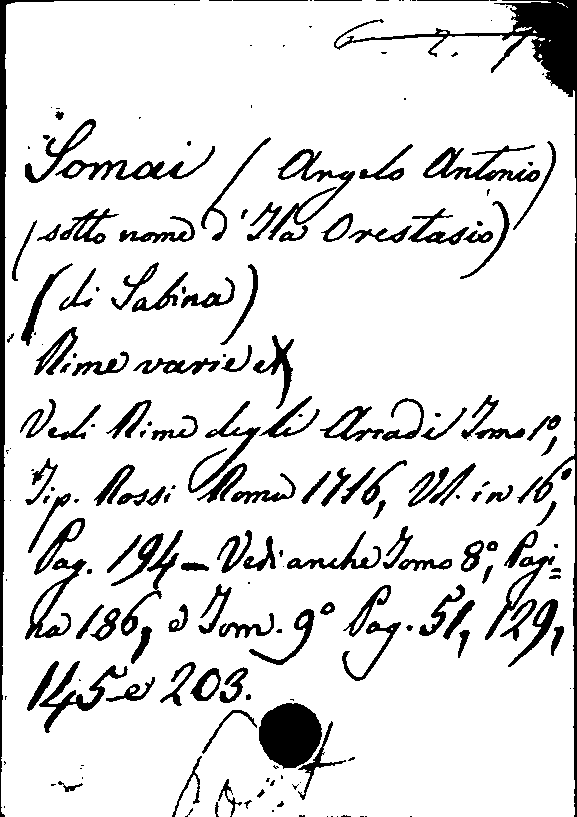 6. 2. 7
Somai (Angelo Antonio)
(sotto nome d'Ila Orestasio)
(di Sabina)
Rime varie
Vedi Rime degli Arcadi Tomo 1º,
Tip. Rossi Roma 1716, Vol. in 16º,
Pag. 194 - Vedi anche Tomo 8º, Pagi=
na 186, e Tom. 9º Pag. 51, 129,
145 e 203.